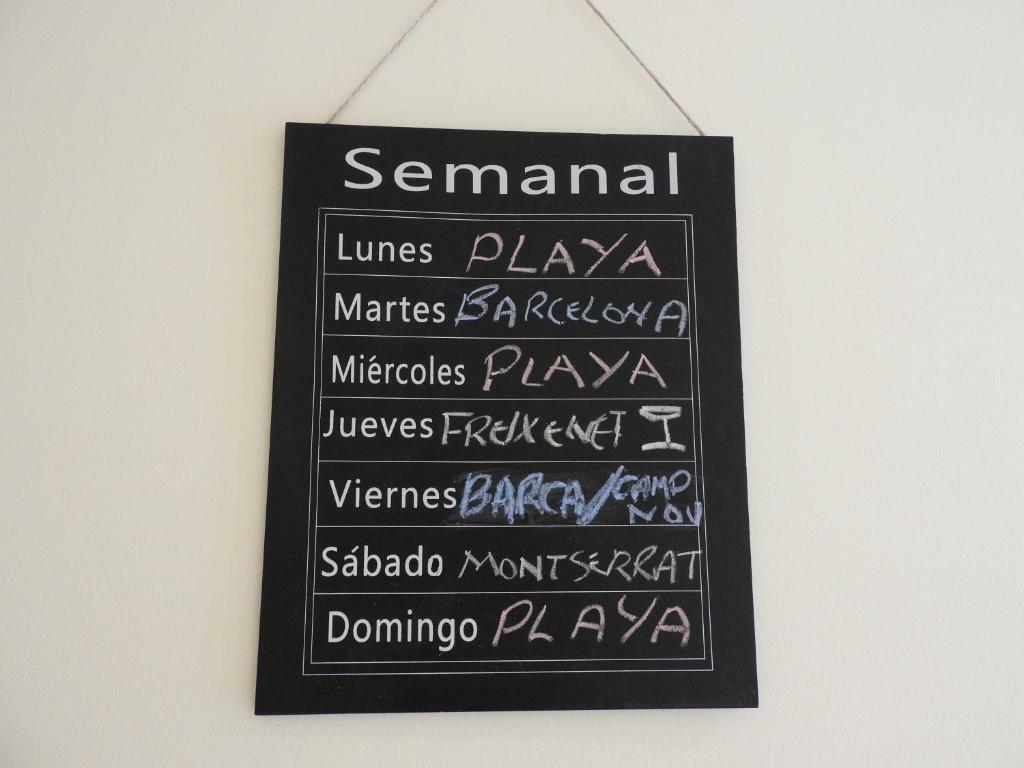 Semanal
Lunes PLAYA
Martes BARCELONA
Miércoles PLAYA
Jueves FREIXENET
Viernes BARCA/CAMP NOU
Sábado MONTSERRAT
Domingo PLAYA